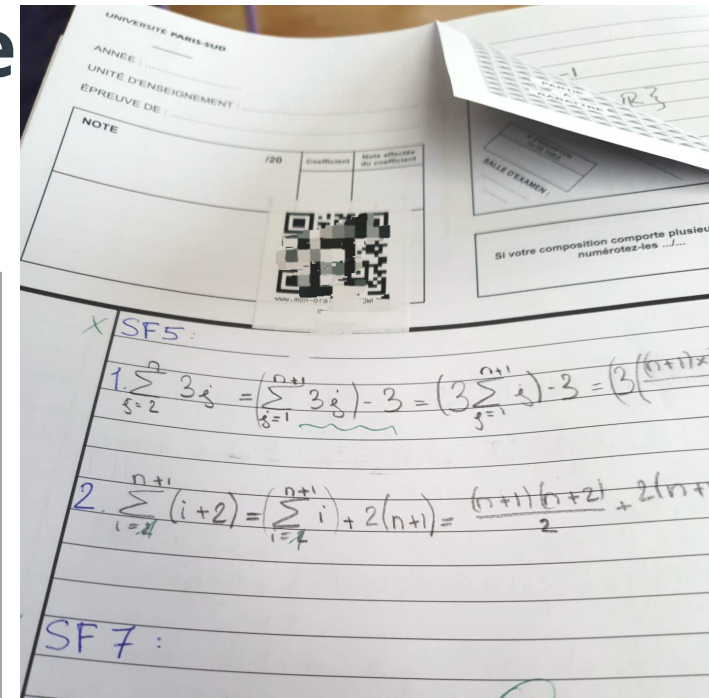 e
UNIVERSITÉ PARIS-SUD
ANNÉE :
UNITÉ D'ENSEIGNEMENT :
ÉPREUVE DE :
NOTE
/20
Coefficient
Note affectée du coefficient
-1
ℝ}
SALLE D'EXAMEN :
Si votre composition comporte plusieu
numérotez-les .../...
X SF5 :
1. ∑_{j=2}^{n} 3j = (∑_{j=1}^{n+1} 3j) - 3 = (3 ∑_{j=1}^{n+1} j) - 3 = (3((n+1)×
2. ∑_{i=1}^{n+1} (i+2) = (∑_{i=1}^{n+1} i) + 2(n+1) = (n+1)(n+2)/2 + 2(n+
SF 7 :